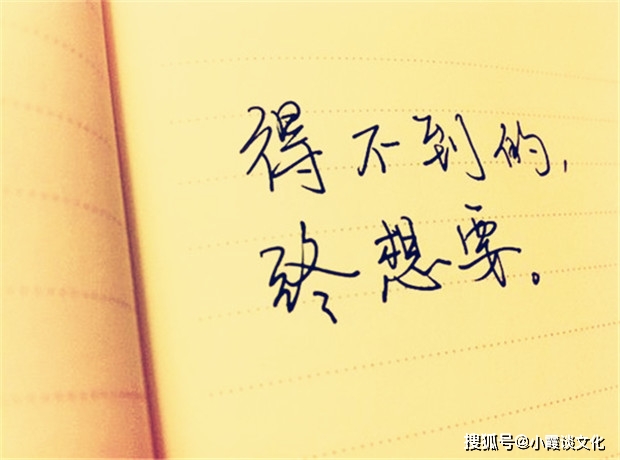 得不到的,
终想要。
搜狐号@小霞谈文化